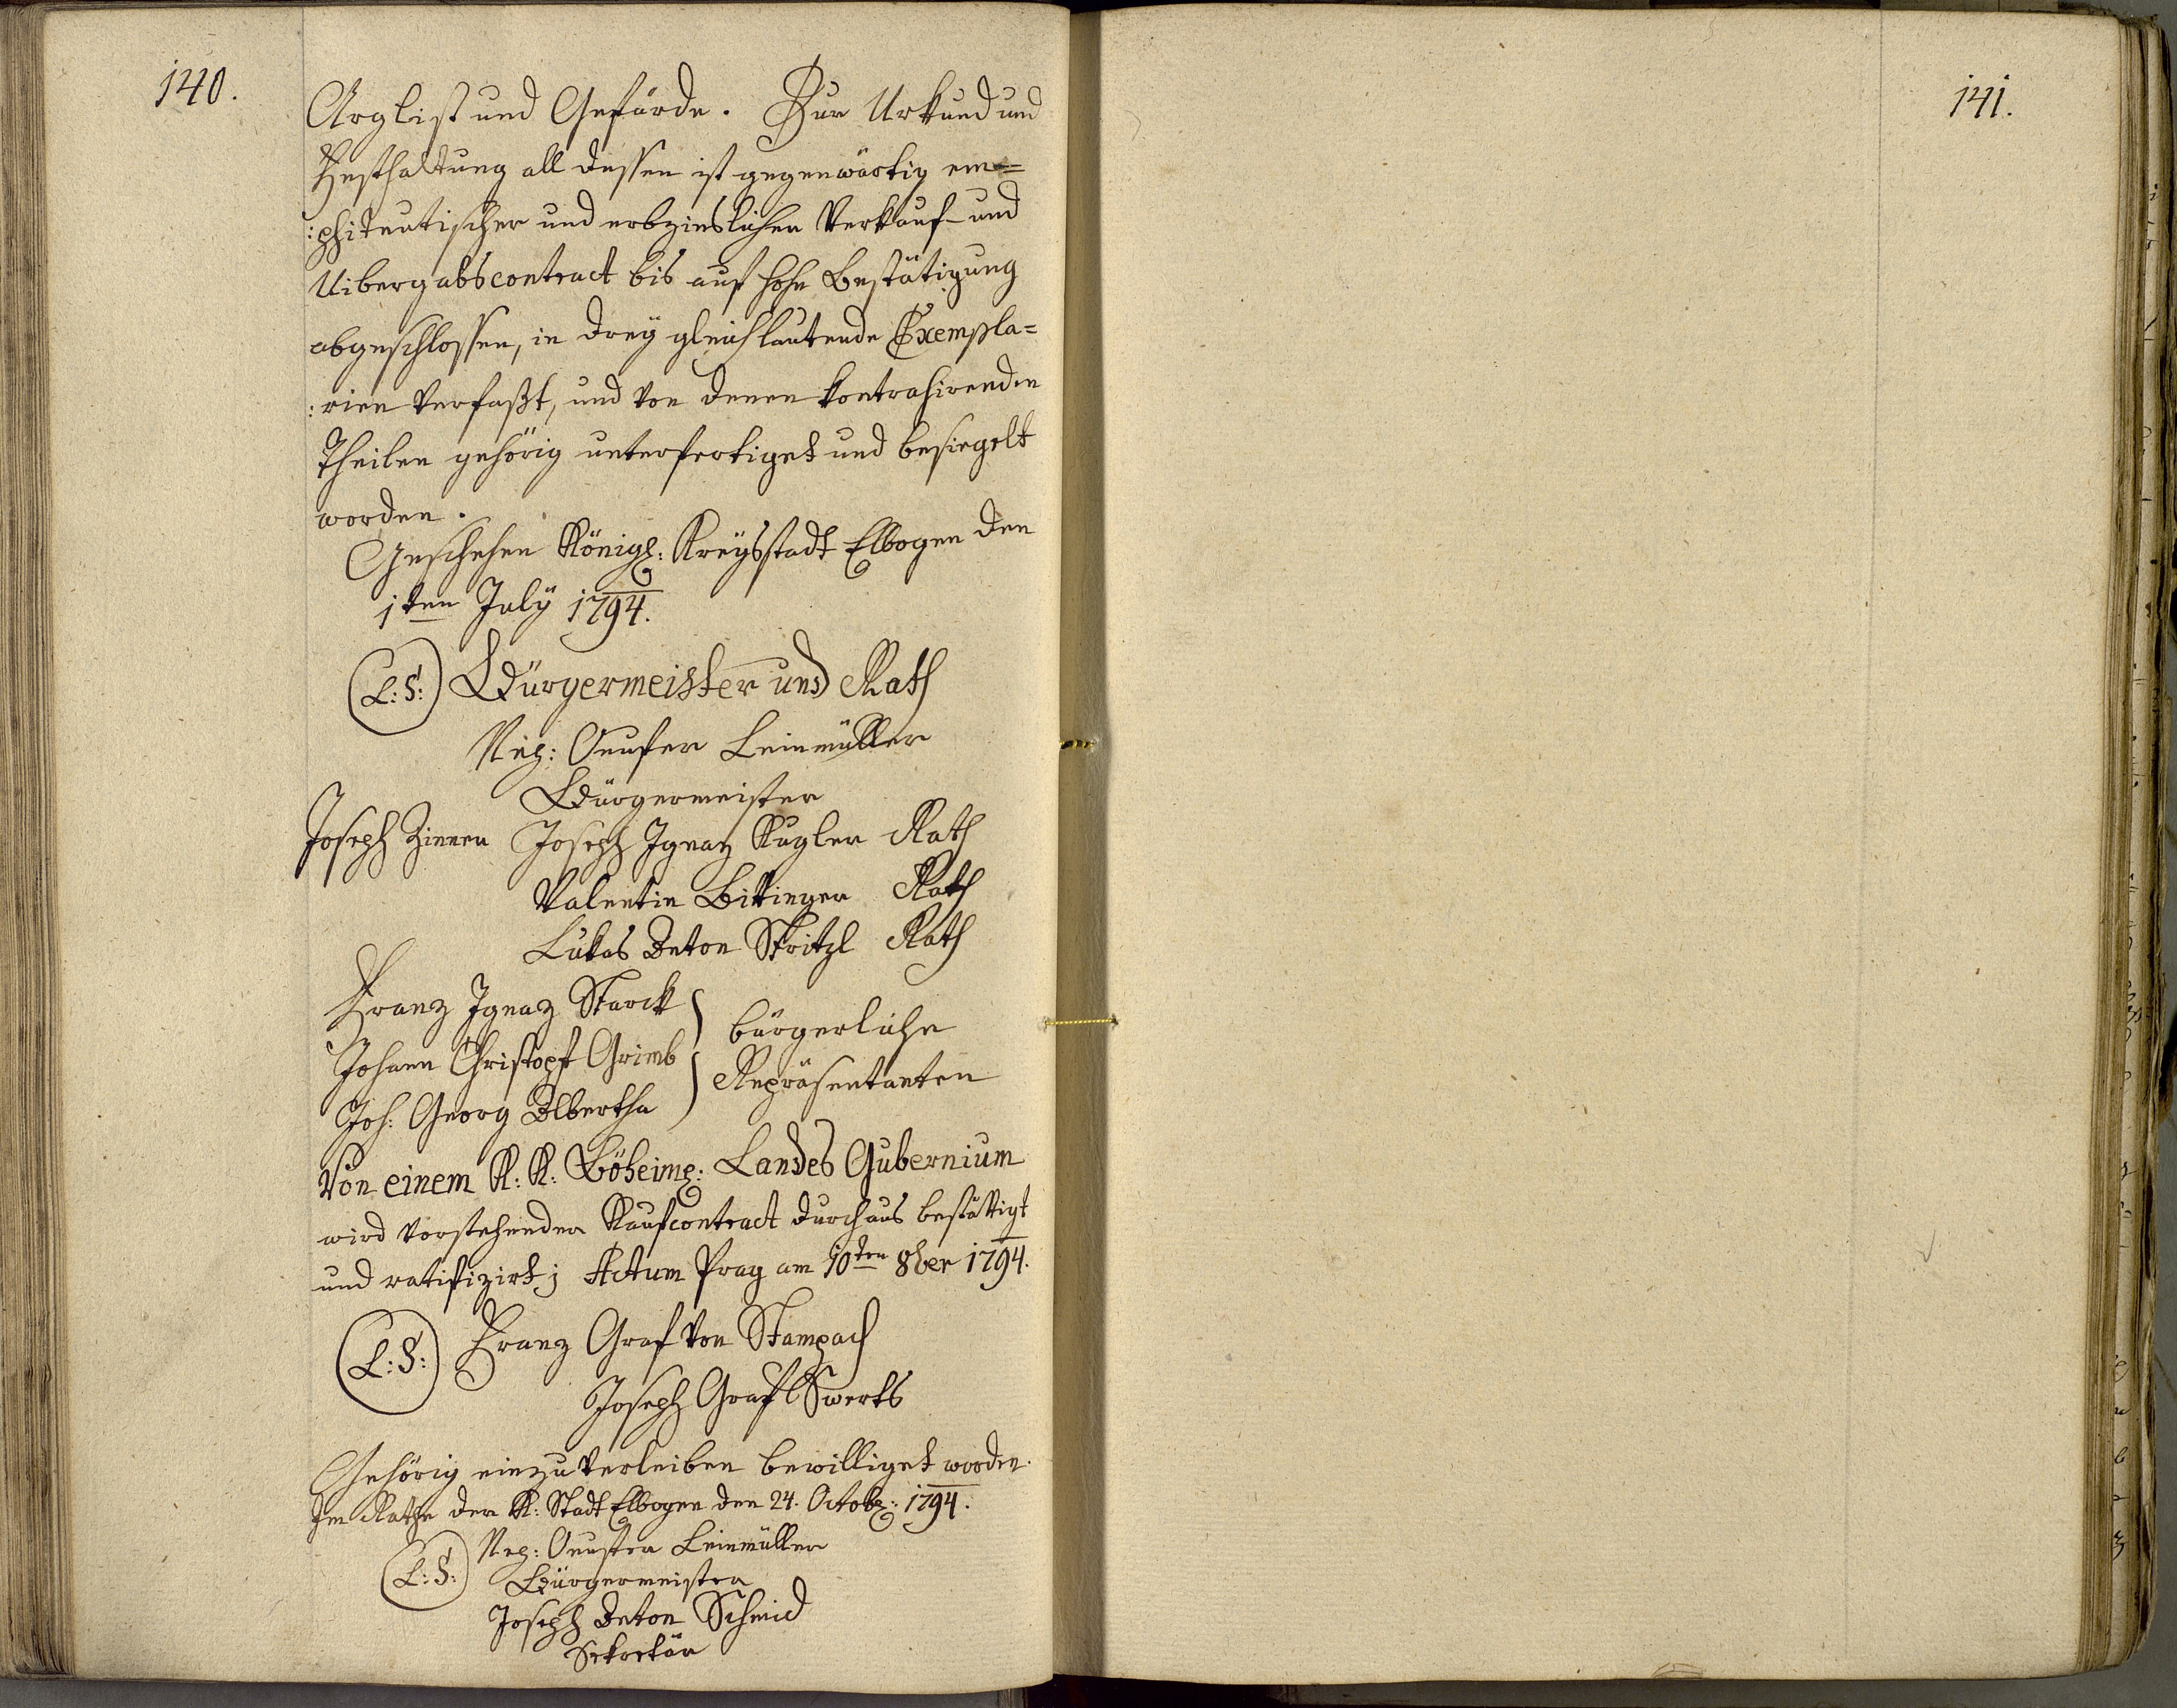 140.
Arglist und Gefärde. Zur Urkund und
Festhaltung all dessen ist gegenwärtig em=
:phiteutischer und erbzinslicher Verkauf- und
Uibergabscontract bis auf hohe Bestätigung
abgeschlossen, in drey gleichlautende Exempla=
:rien verfaßt, und von denen kontrahirenden
Theilen gehörig unterfertiget und besiegelt
worden.
Geschehen Königl: Kreysstadt Elbogen den
1ten July 1794.
(L:S:) Bürgermeister und Rath
Leinmüller
Bürgermeister
Joseph Zinner Joseph Ignaz Kugler Rath
Valentin Bittinger Rath
Lukas Anton Stritzl Rath
Franz Ignaz Starck
Johann Christoph Grimb
Joh: Georg Alberth
bürgerliche
Repräsentanten
Von einem K: K: Böheim: Landes Gubernium
wird vorstehender Kaufcontract durchaus bestättigt
und ratifizirt; Actum Prag am 10ten 8ber 1794.
(L:S:) Franz Graf von Stampach
Joseph Graf Swerts
Gehörig einzuverleiben bewilliget worden.
Im Rathe der K: Stadt Elbogen den 24. Octob: 1794.
(L:S:) Leinmüller
Bürgermeister
Joseph Anton Schmid
Sekretär
141.